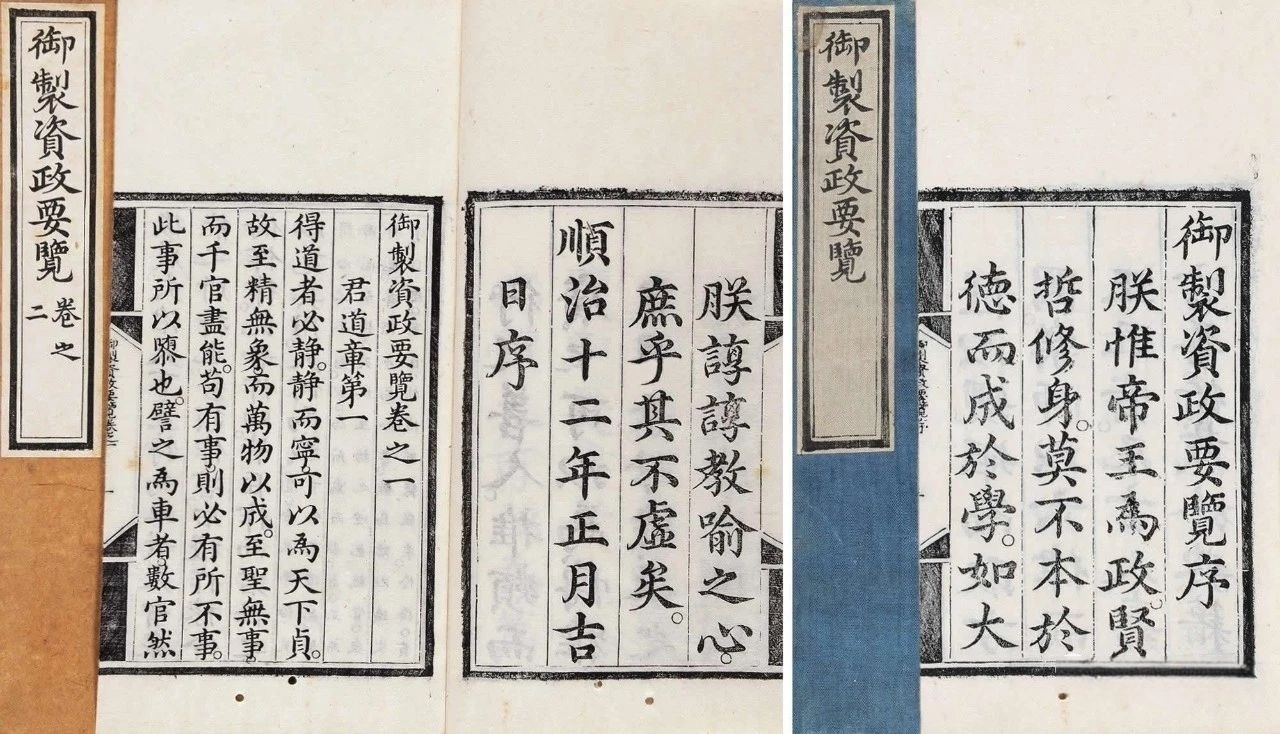 御製資政要覽
御製資政要覽序
朕惟帝王爲政。賢
哲修身。莫不本於
德而成於學。如大
朕諄諄教喻之心。
庶乎其不虛矣。
順治十二年正月吉
日序
御製資政要覽卷之一
君道章第一
得道者必静。静而寧。可以爲天下貞。
故至精無象。而萬物以成。至聖無事。
而千官盡能。苟有事。則必有所不事。
此事所以隳也。譬之爲車者。數官然
御製資政要覽
卷之二